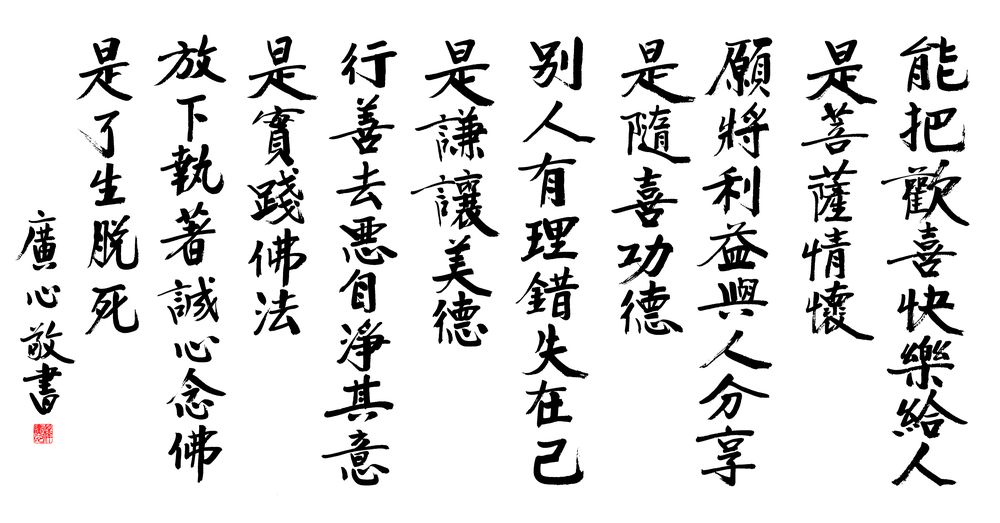 能把歡喜快樂給人
是菩薩情懷
願將利益與人分享
是隨喜功德
別人有理錯失在己
是謙讓美德
行善去惡自淨其意
是實踐佛法
放下執著誠心念佛
是了生脫死
廣心敬書